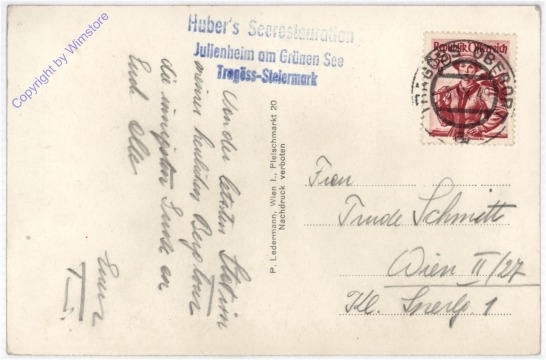 Copyright by Wimstore
Huber's Seerestauration
Julienheim am Grünen See
Tragöss-Steiermark
Republik Österreich
TRAGÖSS-OBERORT
Von der letzten Station
meiner herrlichen Bergtour
die innigsten Grüße an
Euch Alle
Euer
P. Ledermann, Wien I., Fleischmarkt 20
Nachdruck verboten
Frau
Trude Schmitt
Wien II/27
Kl. Sperlg. 1